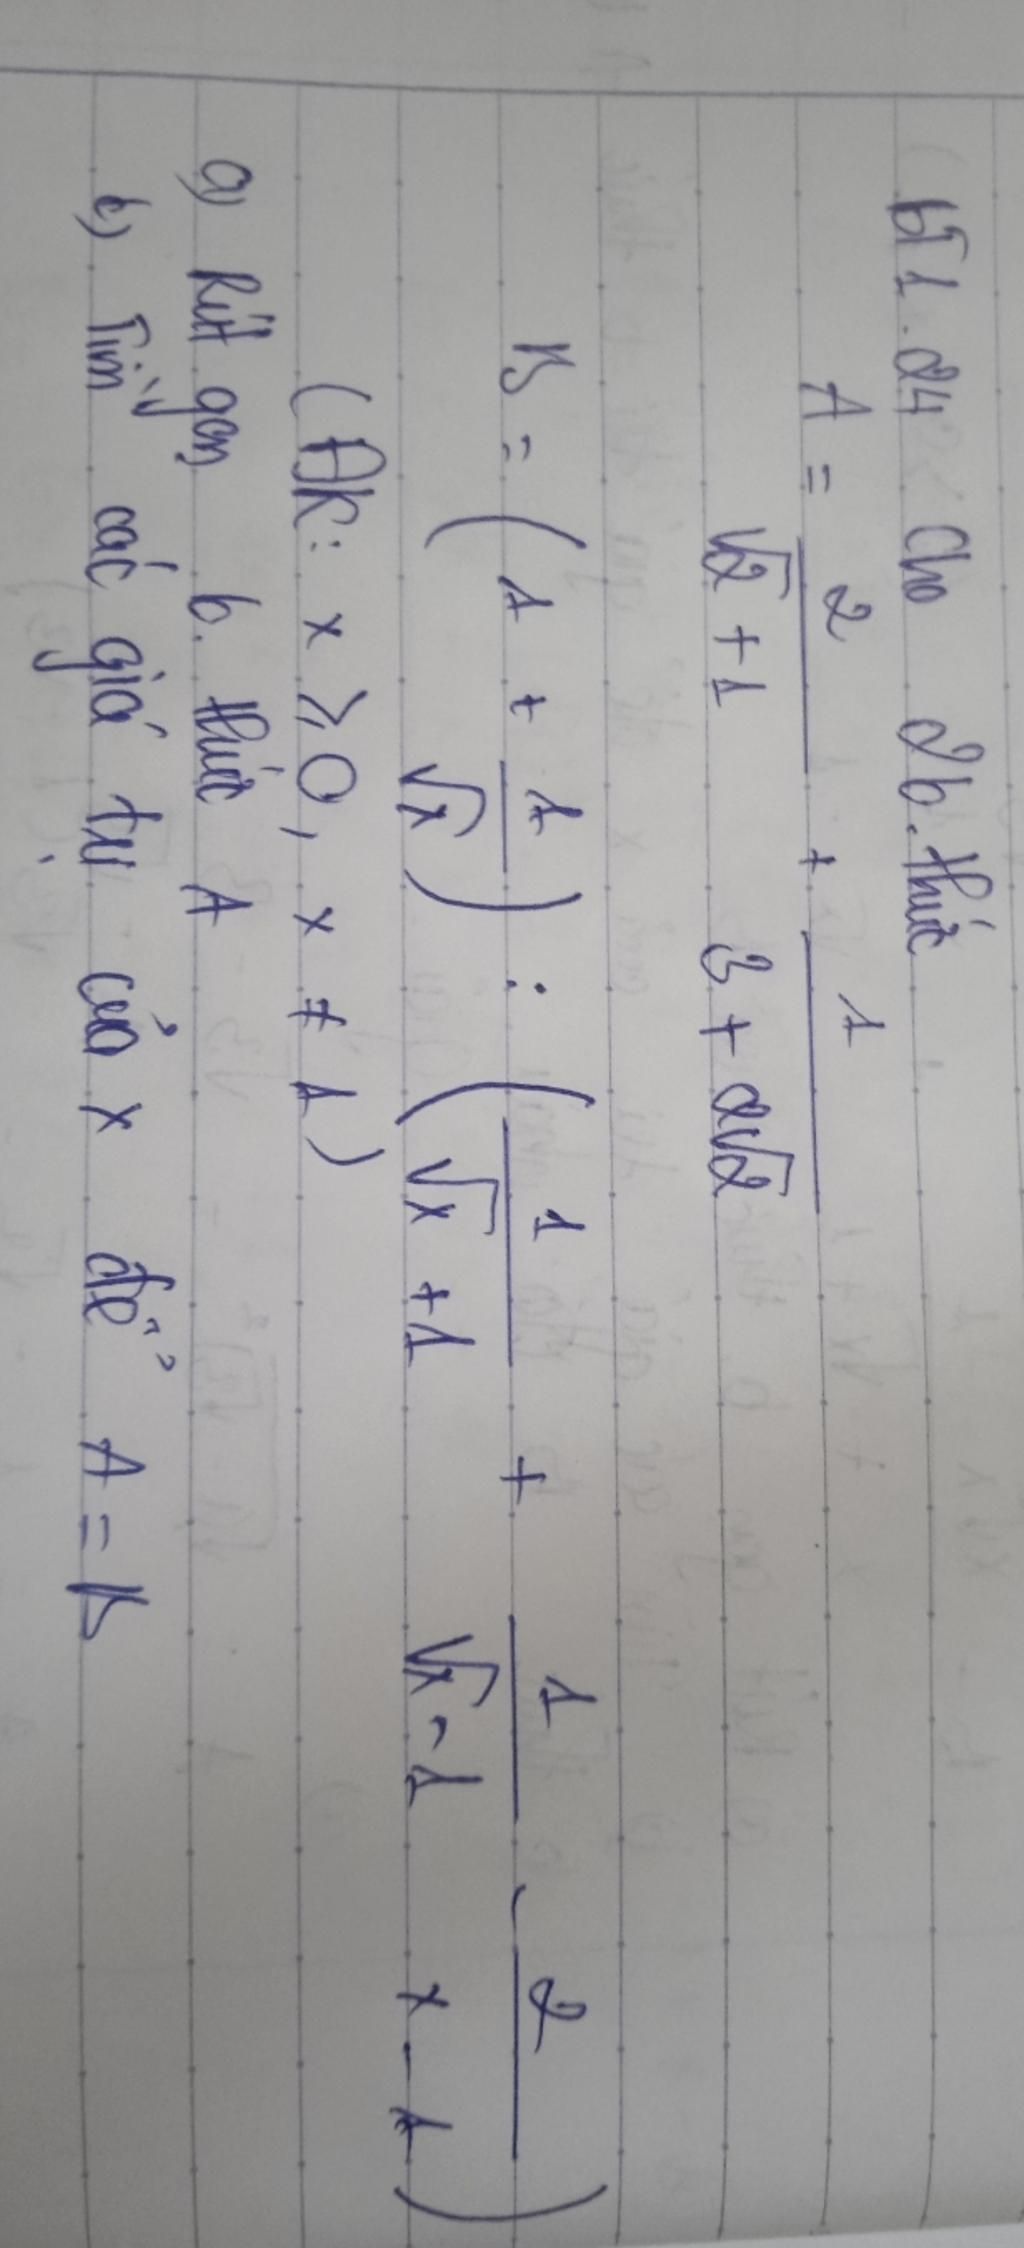 BT 1.24: Cho 2 b.thức
A = 2/(√2 + 1) + 1/(3 + 2√2)
B = (1 + 1/√x) : (1/(√x + 1) + 1/(√x - 1) - 2/(x - 1))
(ĐK: x ≥ 0, x ≠ 1)
a) Rút gọn b.thức A
b) Tìm các giá trị của x để A = B